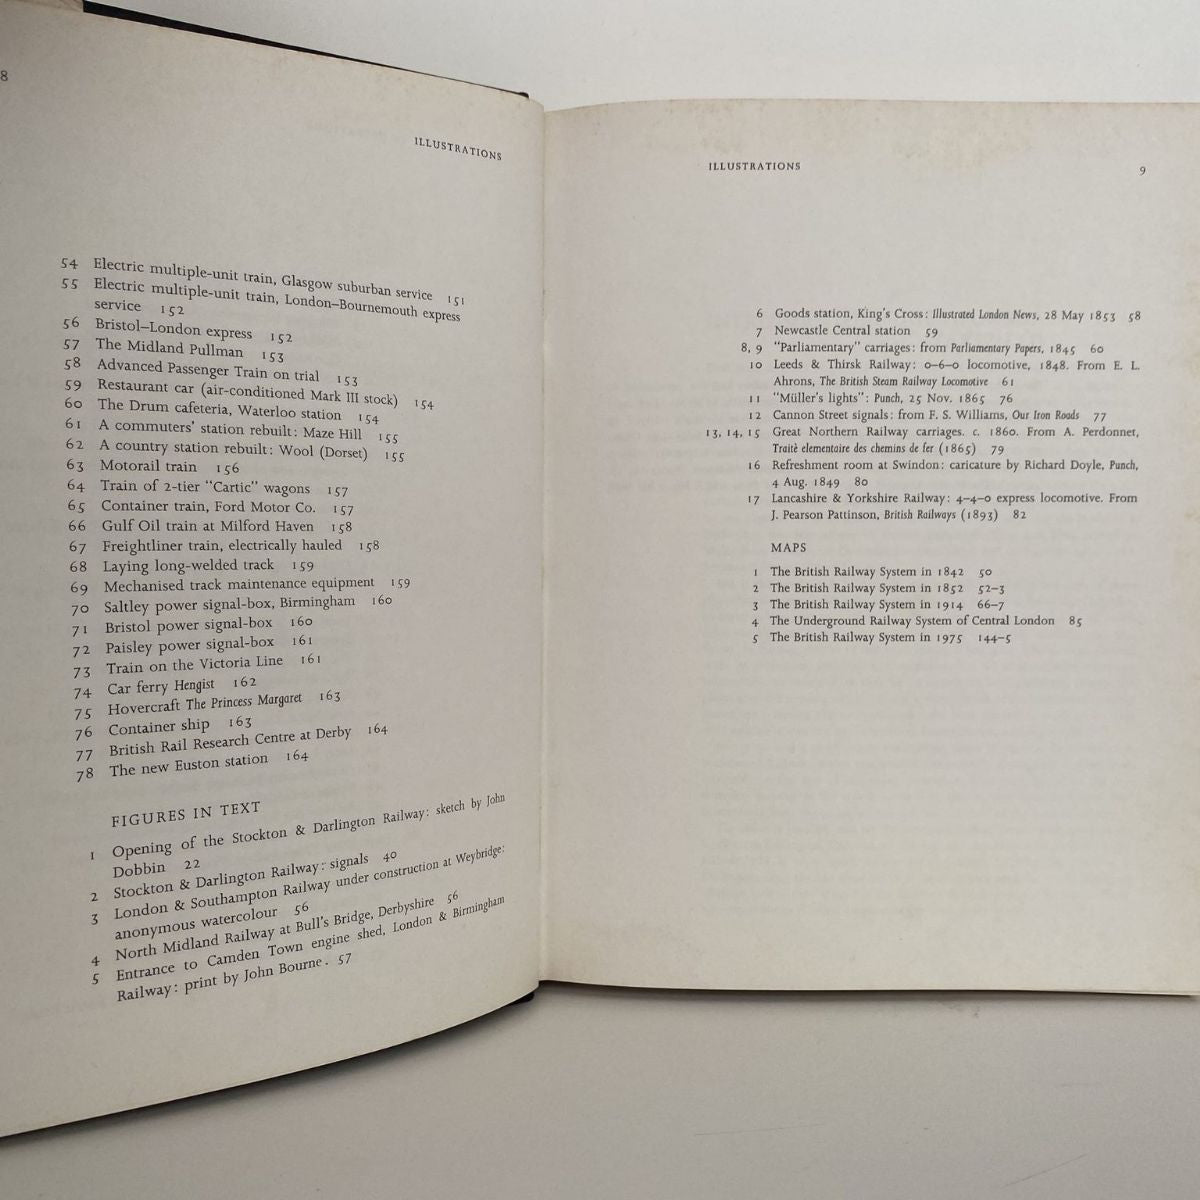 8
ILLUSTRATIONS
54 Electric multiple-unit train, Glasgow suburban service 151
55 Electric multiple-unit train, London–Bournemouth express
service 152
56 Bristol–London express 152
57 The Midland Pullman 153
58 Advanced Passenger Train on trial 153
59 Restaurant car (air-conditioned Mark III stock) 154
60 The Drum cafeteria, Waterloo station 154
61 A commuters' station rebuilt: Maze Hill 155
62 A country station rebuilt: Wool (Dorset) 155
63 Motorail train 156
64 Train of 2-tier "Cartic" wagons 157
65 Container train, Ford Motor Co. 157
66 Gulf Oil train at Milford Haven 158
67 Freightliner train, electrically hauled 158
68 Laying long-welded track 159
69 Mechanised track maintenance equipment 159
70 Saltley power signal-box, Birmingham 160
71 Bristol power signal-box 160
72 Paisley power signal-box 161
73 Train on the Victoria Line 161
74 Car ferry Hengist 162
75 Hovercraft The Princess Margaret 163
76 Container ship 163
77 British Rail Research Centre at Derby 164
78 The new Euston station 164
FIGURES IN TEXT
1 Opening of the Stockton & Darlington Railway: sketch by John
Dobbin 22
2 Stockton & Darlington Railway: signals 40
3 London & Southampton Railway under construction at Weybridge:
anonymous watercolour 56
4 North Midland Railway at Bull's Bridge, Derbyshire 56
5 Entrance to Camden Town engine shed, London & Birmingham
Railway: print by John Bourne. 57
ILLUSTRATIONS 9
6 Goods station, King's Cross: Illustrated London News, 28 May 1853 58
7 Newcastle Central station 59
8, 9 "Parliamentary" carriages: from Parliamentary Papers, 1845 60
10 Leeds & Thirsk Railway: 0–6–0 locomotive, 1848. From E. L.
Ahrons, The British Steam Railway Locomotive 61
11 "Müller's lights": Punch, 25 Nov. 1865 76
12 Cannon Street signals: from F. S. Williams, Our Iron Roads 77
13, 14, 15 Great Northern Railway carriages. c. 1860. From A. Perdonnet,
Traitè elementaire des chemins de fer (1865) 79
16 Refreshment room at Swindon: caricature by Richard Doyle, Punch,
4 Aug. 1849 80
17 Lancashire & Yorkshire Railway: 4–4–0 express locomotive. From
J. Pearson Pattinson, British Railways (1893) 82
MAPS
1 The British Railway System in 1842 50
2 The British Railway System in 1852 52–3
3 The British Railway System in 1914 66–7
4 The Underground Railway System of Central London 85
5 The British Railway System in 1975 144–5